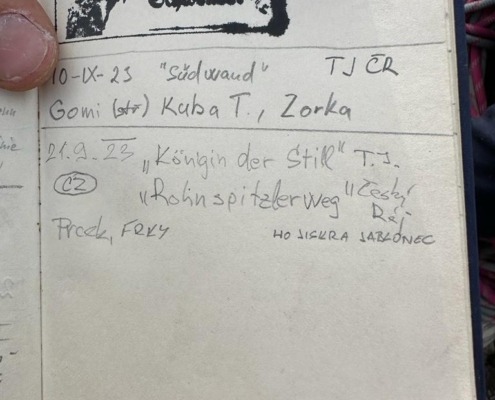 September
10-IX-23 "Südwand" TJ ČR
Gomi Kuba T., Zorka
21.9.23 „Königin der Still" T.J.
CZ „Rohnspitzlerweg" Český
Ráj
FRKY HO JISKRA JABLONEC